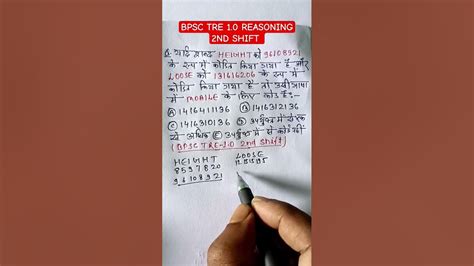 BPSC TRE 1.0 REASONING
2ND SHIFT
Q. यदि शब्द HEIGHT को 96108921
के रूप में कोडित किया जाता है और
LOOSE को 131616206 के रूप में
कोडित किया जाता है तो उसी भाषा
में MOBILE के लिए कोड है:-
Ⓐ 1416411136 Ⓑ 1416312136
Ⓒ 1416310136 Ⓓ उपर्युक्त में से एक
से अधिक Ⓔ उपर्युक्त में से कोई नहीं
(BPSC TRE-1.0 2nd Shift)
HEIGHT LOOSE
8 5 9 7 8 20 12 15 15 19 5
9 6 10 8 9 21